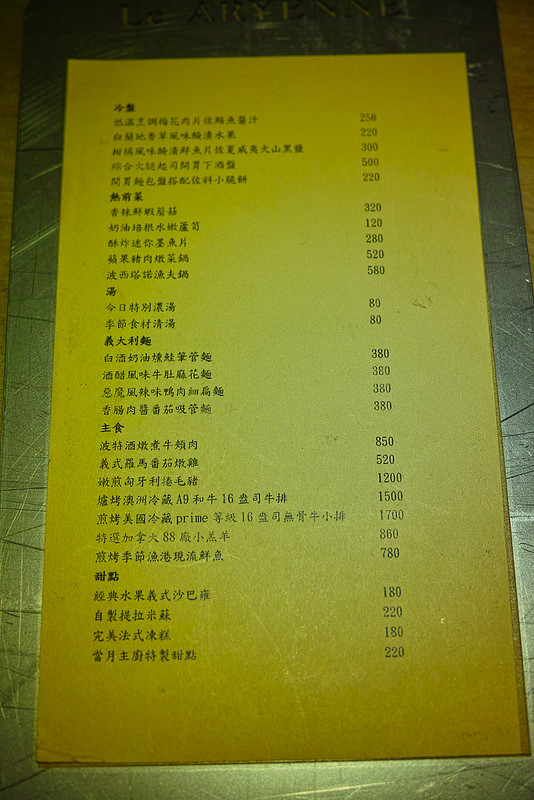 Le ARYENNE
冷盤
低溫烹調梅花肉片佐鮪魚醬汁 250
白蘭地香草風味醃漬水果 220
柑橘風味醃漬鮮魚片佐夏威夷火山黑鹽 300
綜合火腿起司開胃下酒盤 500
開胃麵包盤搭配佐料小脆餅 220
熱前菜
香辣鮮蝦蘑菇 320
奶油培根水嫩蘆筍 120
酥炸迷你墨魚片 280
蘋果豬肉燉菜鍋 520
波西塔諾漁夫鍋 580
湯
今日特別濃湯 80
季節食材清湯 80
義大利麵
白酒奶油燻鮭筆管麵 380
酒醋風味牛肚麻花麵 380
惡魔風辣味鴨肉細扁麵 380
香腸肉醬番茄吸管麵 380
主食
波特酒燉煮牛頰肉 850
義式羅馬番茄燉雞 520
嫩煎匈牙利捲毛豬 1200
爐烤澳洲冷藏A9和牛16盎司牛排 1500
煎烤美國冷藏prime等級16盎司無骨牛小排 1700
特選加拿大88廠小羔羊 860
煎烤季節漁港現流鮮魚 780
甜點
經典水果義式沙巴雍 180
自製提拉米蘇 220
完美法式凍糕 180
當月主廚特製甜點 220